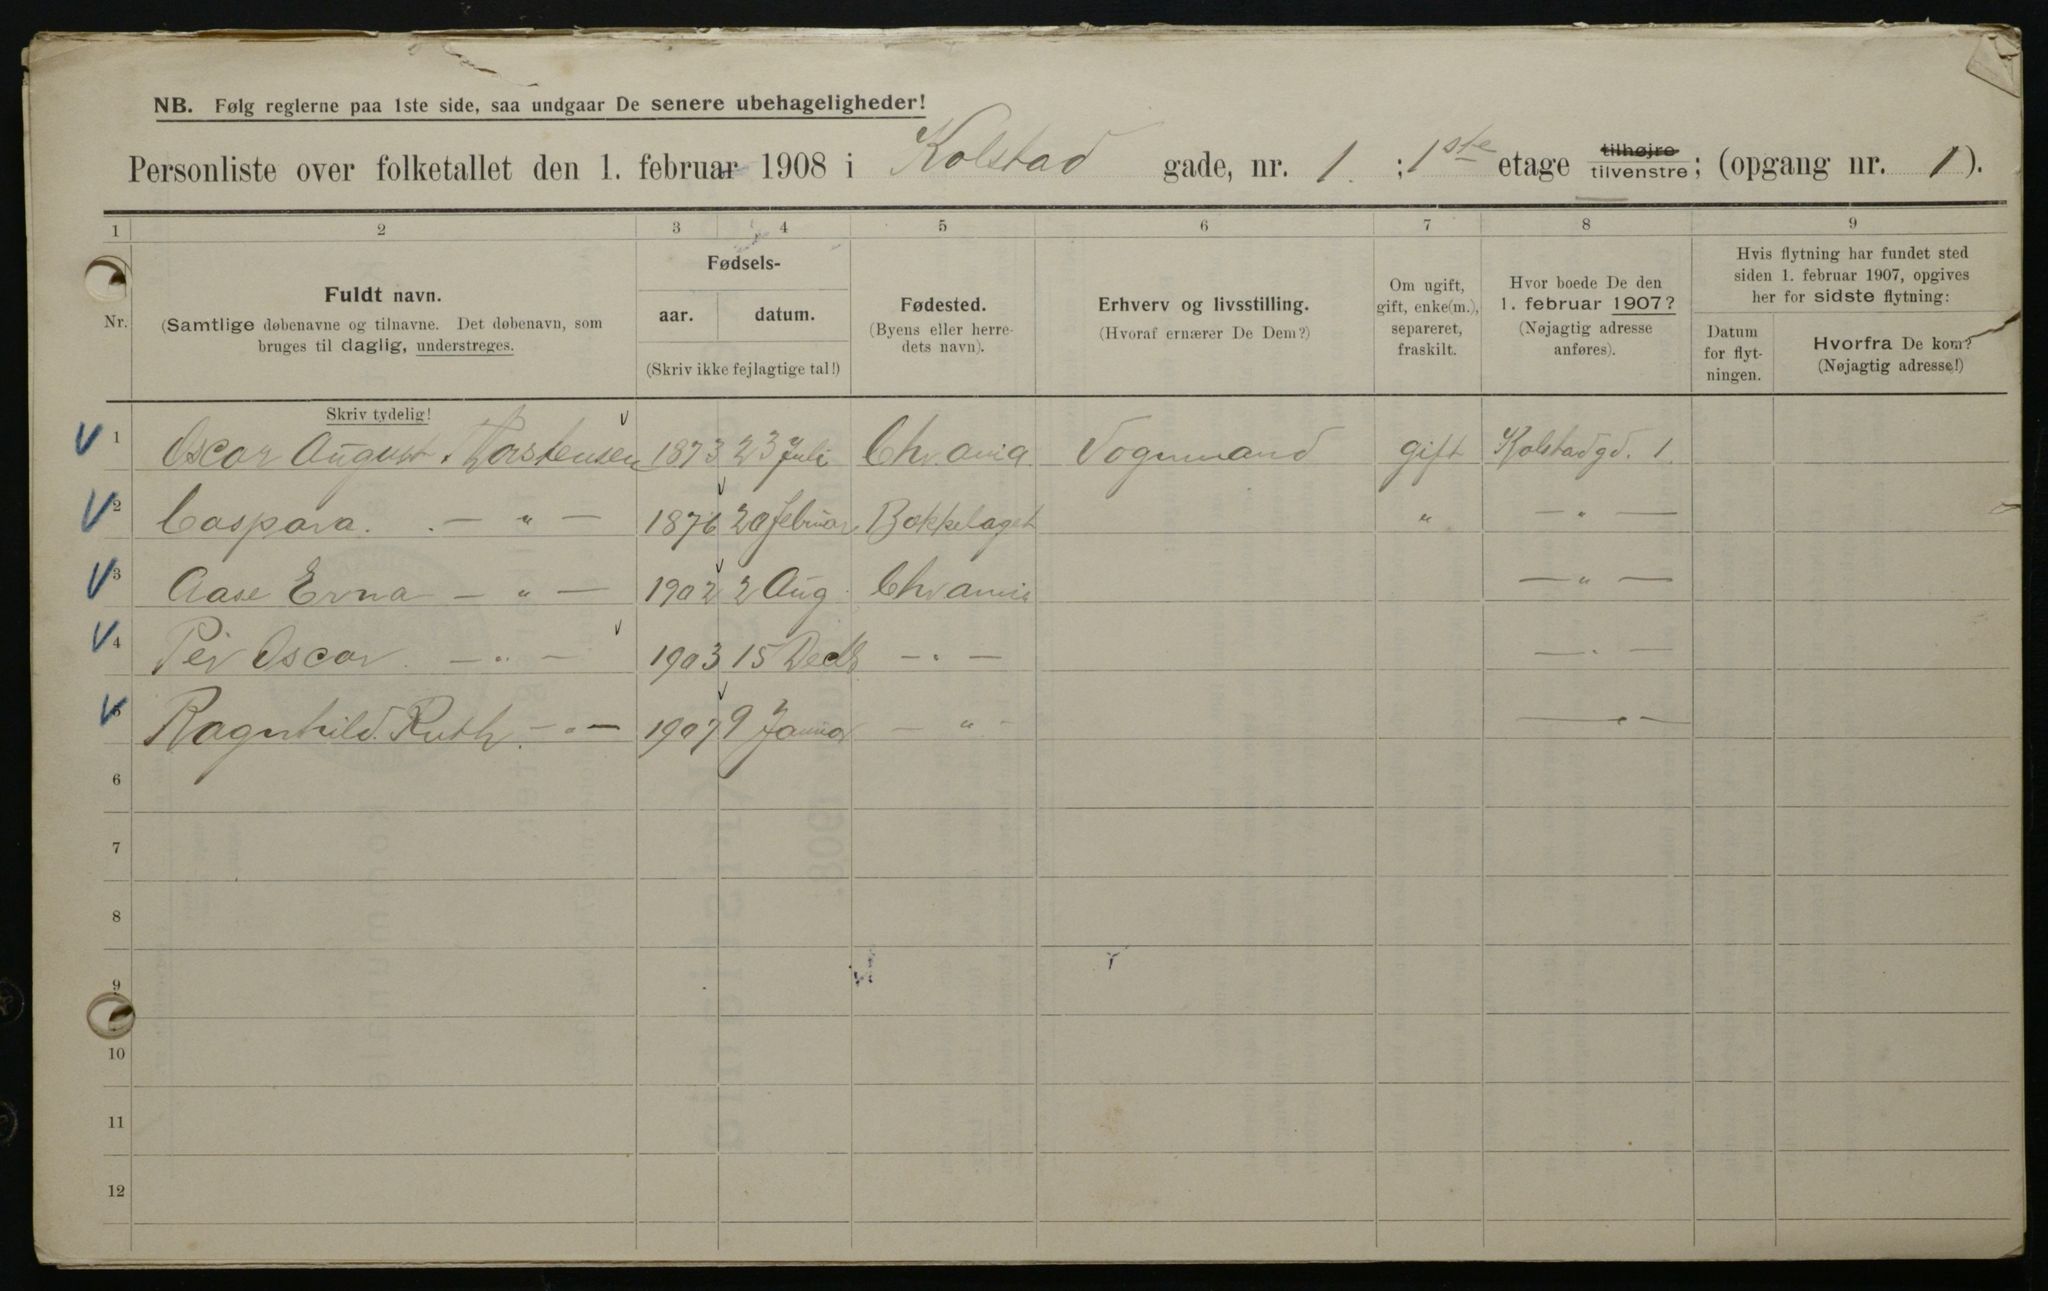 NB. Følg reglerne paa 1ste side, saa undgaar De senere ubehageligheder!
Personliste over folketallet den 1. februar 1908 i Kolstad gade, nr. 1. ; 1ste etage tilhøjre tilvenstre; (opgang nr. 1).
1 2 3 4 5 6 7 8 9
Nr.
Fuldt navn.
(Samtlige døbenavne og tilnavne. Det døbenavn, som
bruges til daglig, understreges.
Fødsels-
aar. datum.
(Skriv ikke fejlagtige tal!)
Fødested.
(Byens eller herre-
dets navn).
Erhverv og livsstilling.
(Hvoraf ernærer De Dem?)
Om ugift,
gift, enke(m.),
separeret,
fraskilt.
Hvor boede De den
1. februar 1907?
(Nøjagtig adresse
anføres).
Hvis flytning har fundet sted
siden 1. februar 1907, opgives
her for sidste flytning:
Datum
for flyt-
ningen.
Hvorfra De kom?
(Nøjagtig adresse!)
Skriv tydelig!
1 Oscar August Thorstensen 1873 23 Juli Chr.ania Vognmand gift Kolstadgd. 1.
2 Caspara. — " — 1876 20 februar Bækkelaget " — " —
3 Aase Erna — " — 1902 2 Aug. Chr.ania — " —
4 Per Oscar — " — 1903 15 Decb — " — — " —
5 Ragnhild Ruth. — " — 1907 9 Januar — " — — " —
6
7
8
9
10
11
12